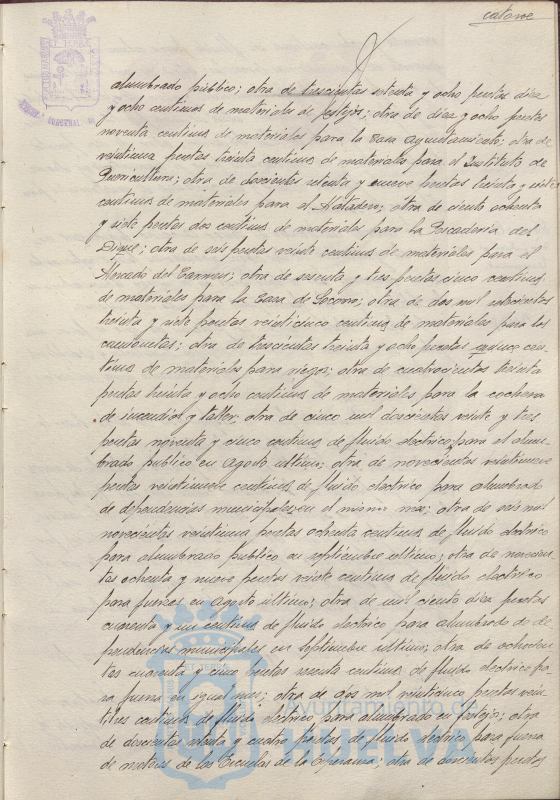 catorce
alumbrado público; otra de trescientas setenta y ocho pesetas diez
y ocho centimos de materiales de festejos; otra de diez y ocho pesetas
noventa centimos de materiales para la Casa Ayuntamiento; otra de
veintiuna pesetas treinta centimos de materiales para el Instituto de
Puericultura; otra de doscientas setenta y nueve pesetas treinta y siete
centimos de materiales para el Matadero; otra de ciento ochenta
y siete pesetas dos centimos de materiales para la Pescaderia del
Dique; otra de seis pesetas veinte centimos de materiales para el
Mercado del Carmen; otra de sesenta y tres pesetas cinco centimos
de materiales para la Casa de Socorro; otra de dos mil setecientas
treinta y siete pesetas veinticinco centimos de materiales para las
camionetas; otra de trescientas treinta y ocho pesetas quince cen-
timos de materiales para riegos; otra de cuatrocientas treinta
pesetas treinta y ocho centimos de materiales para la cochera
de incendios y taller; otra de cinco mil doscientas veinte y tres
pesetas noventa y cinco centimos de fluido electrico para el alum-
brado publico en Agosto ultimo; otra de novecientas veintinueve
pesetas veintinueve centimos de fluido electrico para alumbrado
de dependencias municipales en el mismo mes; otra de seis mil
novecientas veintiuna pesetas ochenta centimos de fluido electrico
para alumbrado publico en septiembre ultimo; otra de novecien-
tas ochenta y nueve pesetas veinte centimos de fluido electrico
para fuerzas en Agosto ultimo; otra de mil ciento diez pesetas
cuarenta y un centimos de fluido electrico para alumbrado de de-
pendencias municipales en septiembre ultimo; otra de ochocien-
tas cuarenta y cinco pesetas sesenta centimos de fluido electrico pa-
ra fuerza en igual mes; otra de dos mil veinticinco pesetas vein-
titres centimos de fluido electrico para alumbrado en festejos; otra
de doscientas setenta y cuatro pesetas de fluido electrico para fuerza
de motores de las Escuelas de la Esperanza; otra de doscientas pesetas
Ayuntamiento de
HUELVA